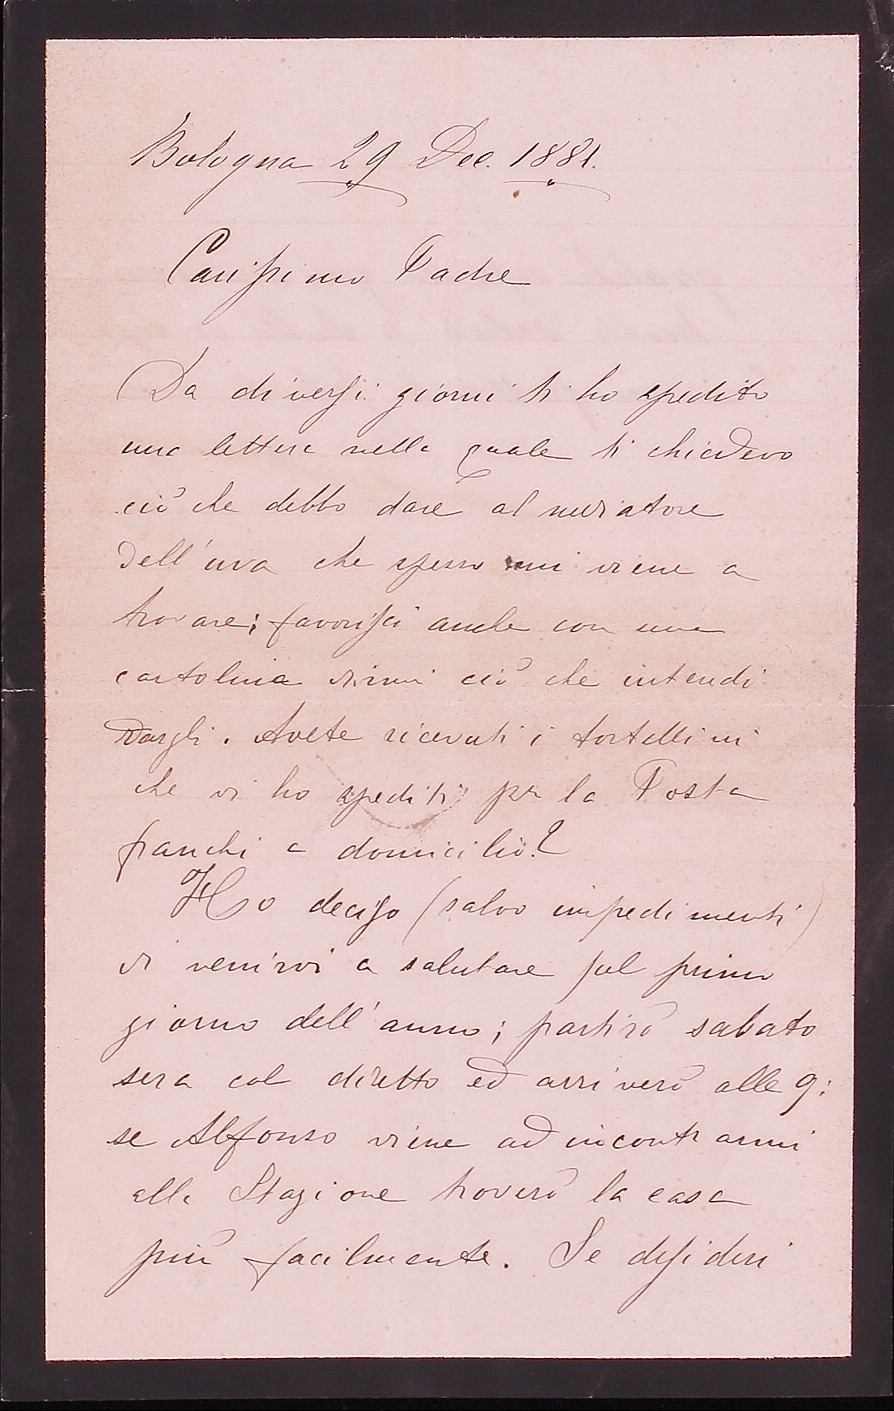 Bologna 29 Dec. 1881.
Carissimo Padre
Da diversi giorni ti ho spedito
una lettera nella quale ti chiedevo
ciò che debbo dare al mediatore
dell'uva che spesso mi viene a
trovare; favorisci anche con una
cartolina dirmi ciò che intendi
dargli. Avete ricevuti i tortellini
che vi ho spediti per la Posta
franchi a domicilio?
Ho deciso (salvo impedimenti)
di venirvi a salutare sul primo
giorno dell'anno; partirò sabato
sera col diretto ed arriverò alle 9:
se Alfonso viene ad incontrarmi
alla Stazione troverò la casa
più facilmente. Se desideri